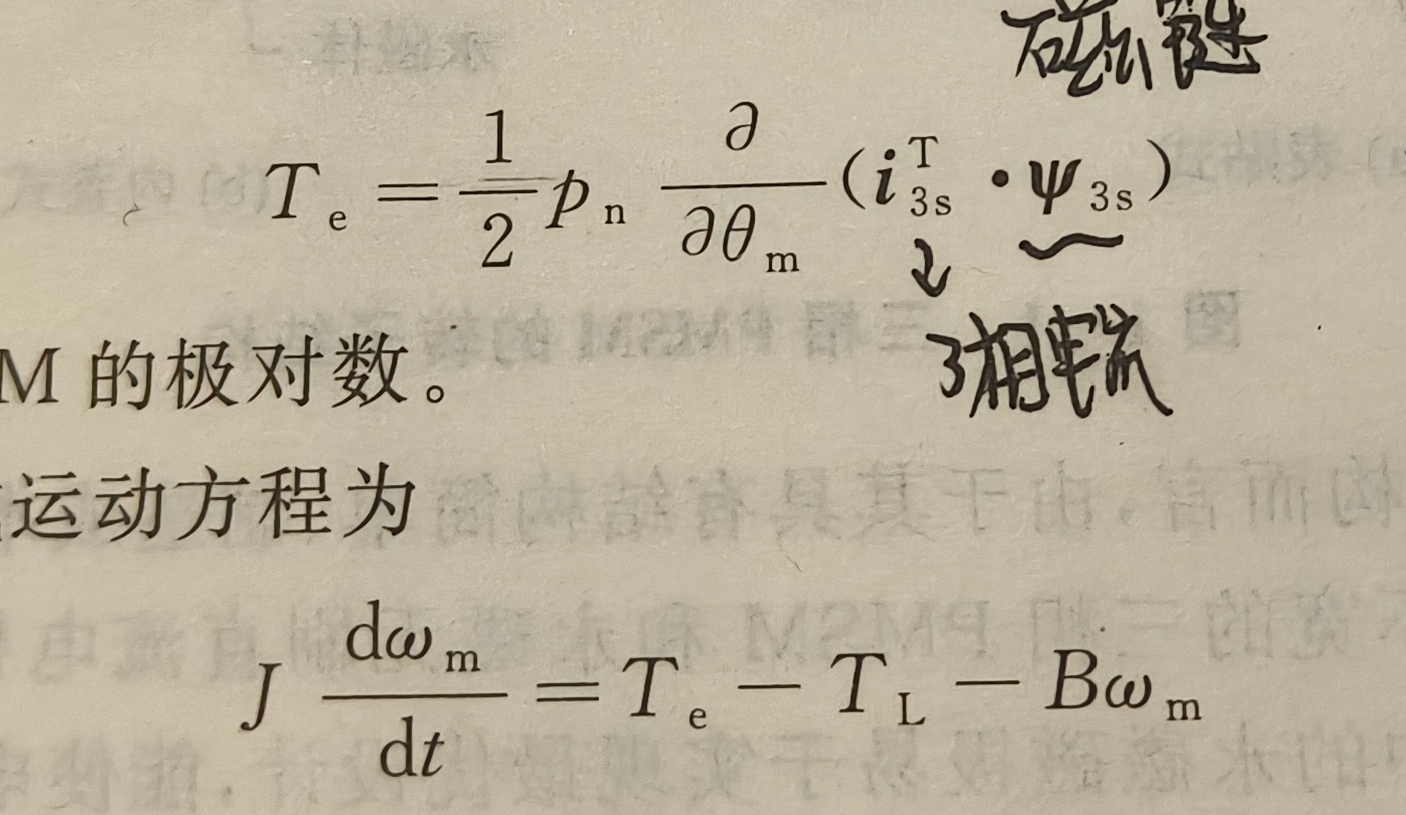 磁链
T_e = \frac{1}{2} p_n \frac{∂}{∂θ_m} (i_{3s}^T · ψ_{3s})
3相电流
M 的极对数。
运动方程为
J \frac{dω_m}{dt} = T_e − T_L − Bω_m